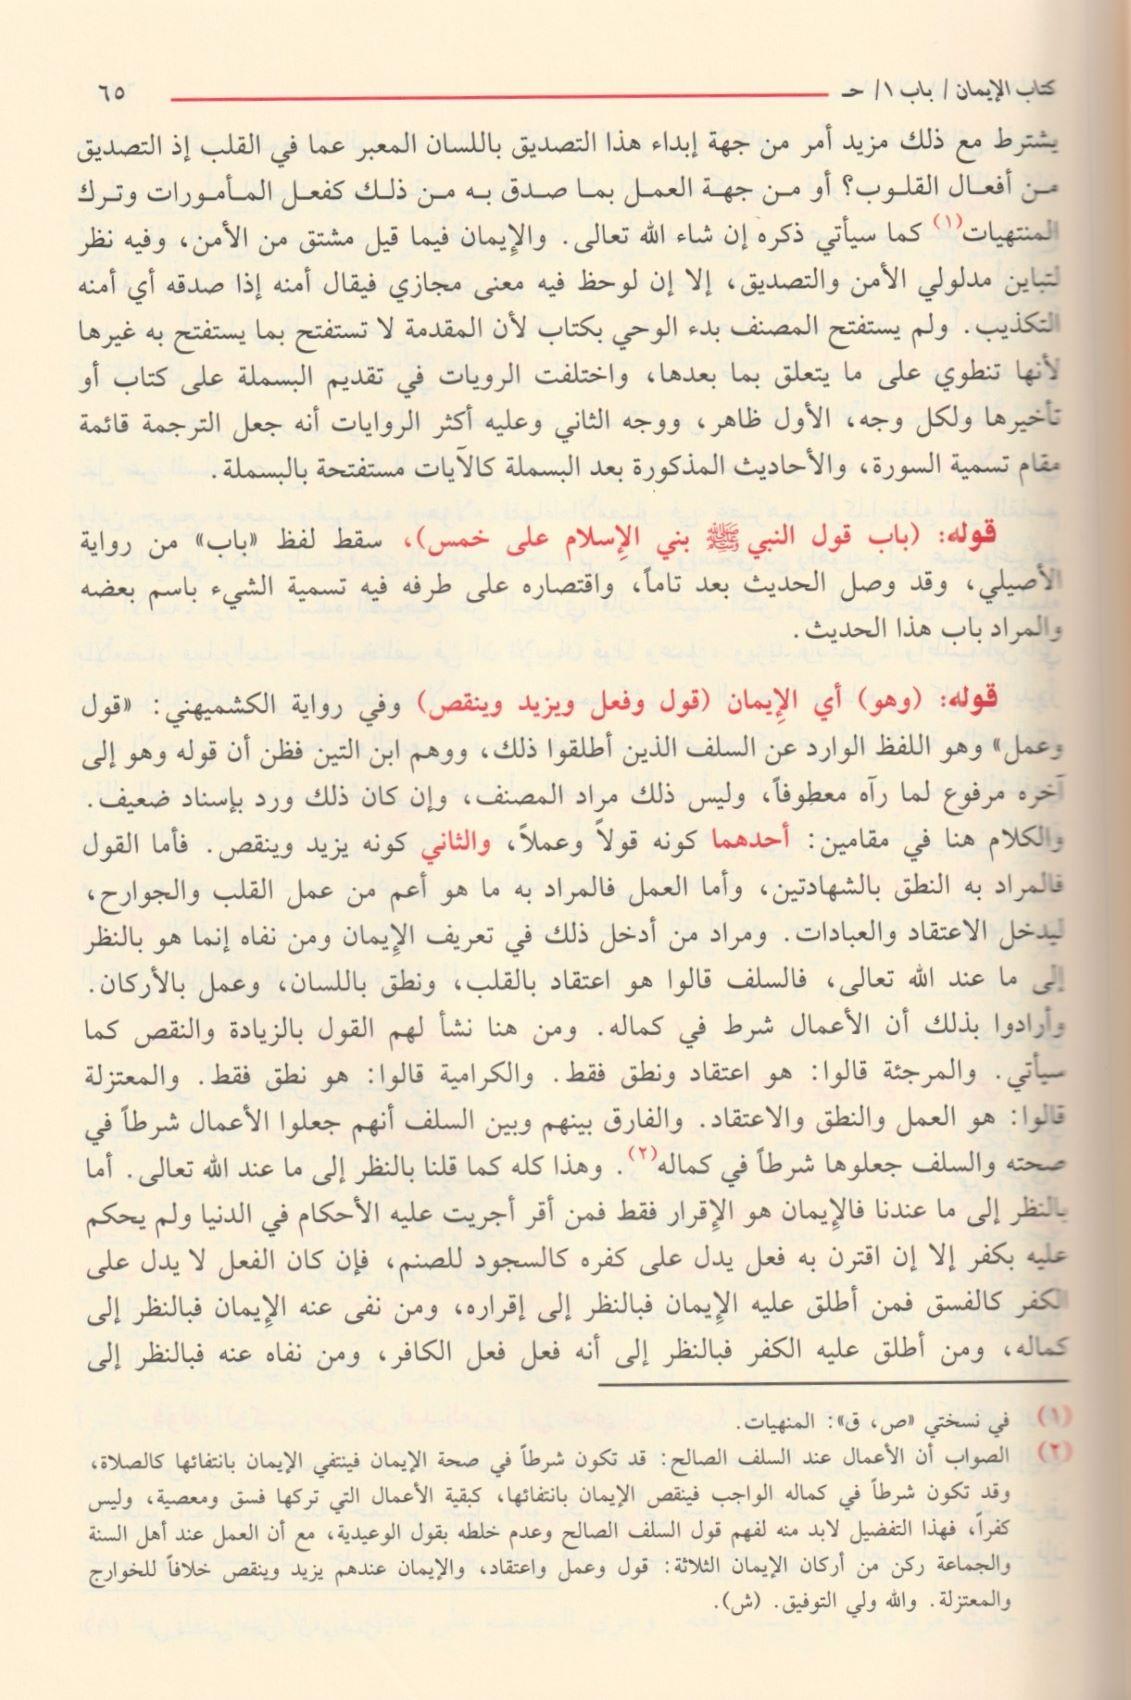 كتاب الإيمان / باب ١/ حـ ٦٥
يشترط مع ذلك مزيد أمر من جهة إبداء هذا التصديق باللسان المعبر عما في القلب إذ التصديق
من أفعال القلوب؟ أو من جهة العمل بما صدق به من ذلك كفعل المأمورات وترك
المنتهيات(١) كما سيأتي ذكره إن شاء الله تعالى. والإيمان فيما قيل مشتق من الأمن، وفيه نظر
لتباين مدلولي الأمن والتصديق، إلا إن لوحظ فيه معنى مجازي فيقال أمنه إذا صدقه أي أمنه
التكذيب. ولم يستفتح المصنف بدء الوحي بكتاب لأن المقدمة لا تستفتح بما يستفتح به غيرها
لأنها تنطوي على ما يتعلق بما بعدها، واختلفت الرويات في تقديم البسملة على كتاب أو
تأخيرها ولكل وجه، الأول ظاهر، ووجه الثاني وعليه أكثر الروايات أنه جعل الترجمة قائمة
مقام تسمية السورة، والأحاديث المذكورة بعد البسملة كالآيات مستفتحة بالبسملة.
قوله: (باب قول النبي ﷺ بني الإِسلام على خمس)، سقط لفظ «باب» من رواية
الأصيلي، وقد وصل الحديث بعد تاماً، واقتصاره على طرفه فيه تسمية الشيء باسم بعضه
والمراد باب هذا الحديث.
قوله: (وهو) أي الإِيمان (قول وفعل ويزيد وينقص) وفي رواية الكشميهني: «قول
وعمل» وهو اللفظ الوارد عن السلف الذين أطلقوا ذلك، ووهم ابن التين فظن أن قوله وهو إلى
آخره مرفوع لما رآه معطوفاً، وليس ذلك مراد المصنف، وإن كان ذلك ورد بإسناد ضعيف.
والكلام هنا في مقامين: أحدهما كونه قولاً وعملاً، والثاني كونه يزيد وينقص. فأما القول
فالمراد به النطق بالشهادتين، وأما العمل فالمراد به ما هو أعم من عمل القلب والجوارح،
ليدخل الاعتقاد والعبادات. ومراد من أدخل ذلك في تعريف الإِيمان ومن نفاه إنما هو بالنظر
إلى ما عند الله تعالى، فالسلف قالوا هو اعتقاد بالقلب، ونطق باللسان، وعمل بالأركان.
وأرادوا بذلك أن الأعمال شرط في كماله. ومن هنا نشأ لهم القول بالزيادة والنقص كما
سيأتي. والمرجئة قالوا: هو اعتقاد ونطق فقط. والكرامية قالوا: هو نطق فقط. والمعتزلة
قالوا: هو العمل والنطق والاعتقاد. والفارق بينهم وبين السلف أنهم جعلوا الأعمال شرطاً في
صحته والسلف جعلوها شرطاً في كماله(٢). وهذا كله كما قلنا بالنظر إلى ما عند الله تعالى. أما
بالنظر إلى ما عندنا فالإِيمان هو الإِقرار فقط فمن أقر أجريت عليه الأحكام في الدنيا ولم يحكم
عليه بكفر إلا إن اقترن به فعل يدل على كفره كالسجود للصنم، فإن كان الفعل لا يدل على
الكفر كالفسق فمن أطلق عليه الإِيمان فبالنظر إلى إقراره، ومن نفى عنه الإِيمان فبالنظر إلى
كماله، ومن أطلق عليه الكفر فبالنظر إلى أنه فعل فعل الكافر، ومن نفاه عنه فبالنظر إلى
(١) في نسختي «ص، ق»: المنهيات.
(٢) الصواب أن الأعمال عند السلف الصالح: قد تكون شرطاً في صحة الإيمان فينتفي الإيمان بانتفائها كالصلاة،
وقد تكون شرطاً في كماله الواجب فينقص الإيمان بانتفائها، كبقية الأعمال التي تركها فسق ومعصية، وليس
كفراً، فهذا التفضيل لابد منه لفهم قول السلف الصالح وعدم خلطه بقول الوعيدية، مع أن العمل عند أهل السنة
والجماعة ركن من أركان الإيمان الثلاثة: قول وعمل واعتقاد، والإيمان عندهم يزيد وينقص خلافاً للخوارج
والمعتزلة. والله ولي التوفيق. (ش).